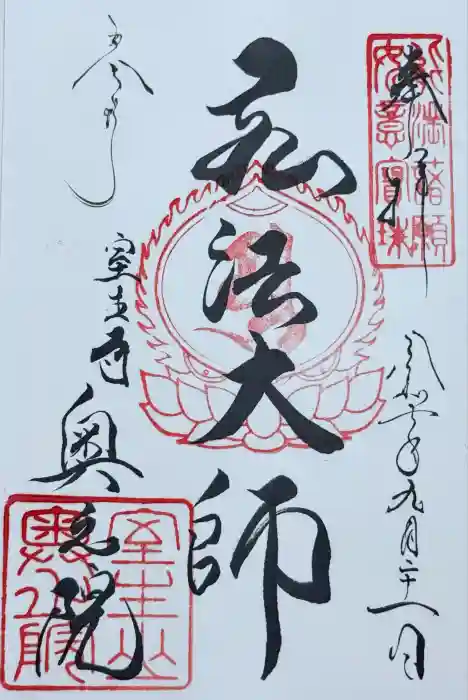 奉拝
令和二年九月二十一日
弘法大師
室生寺
奥之院
室生山
奥之院
如意宝珠